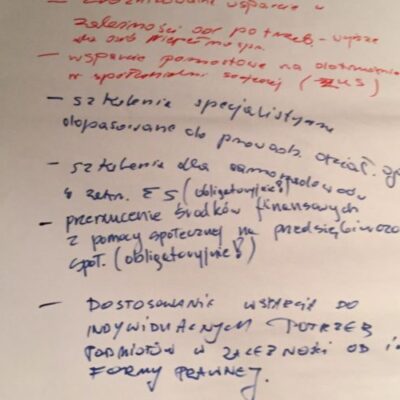 – zróżnicowanie wsparcia w
zależności od potrzeb - wyższe
dla osób niepełnospr.
– wsparcie pomostowe na
w spółdzielni socjalnej (ZUS)
– szkolenia specjalistyczne
dopasowane do prowadz. dział. g
– szkolenia dla samorządowców
z zakr. ES (obligatoryjnie!)
– przerzucenie środków finansowych
z pomocy społecznej na przedsiębiorczo
społ. (obligatoryjnie!)
– DOSTOSOWANIE WSPARCIA DO
INDYWIDUALNYCH POTRZEB
PODMIOTÓW W ZALEŻNOŚCI OD i
FORMY PRAWNEJ.